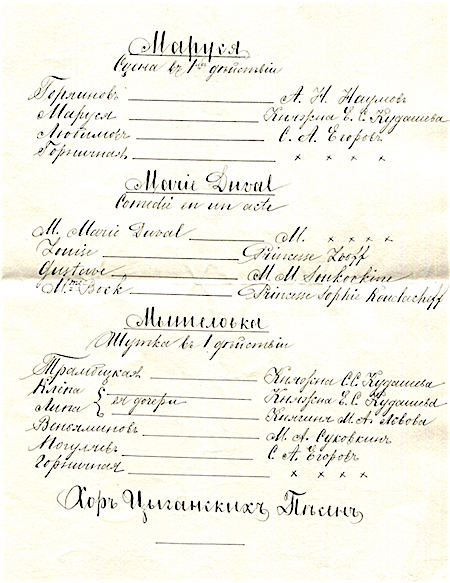 Маруся
Сцена въ 1омъ дѣйствіи
Горлиновъ А. Н. Наумовъ
Маруся Княжна Е. С. Кудашева
Любимовъ С. А. Егоровъ
Горничная × × × ×
Marie Duval
Comedie en un acte
M. Marie Duval M. × × × ×
Louise Princesse Lvoff
Gustave M M Soukovkine
Mme Bock Princesse Sophie Koudacheff
Мышеловка
Шутка въ 1 дѣйствіи
Трамбецкая Княжна С. С. Кудашева
Клёпа Княжна Е. С. Кудашева
Липа } ея дочери Княгиня М. А. Львова
Веньяминовъ М. А. Суковкинъ
Могулчевъ С. А. Егоровъ
Горничная × × × ×
Хоръ Цыганскихъ Пѣсенъ